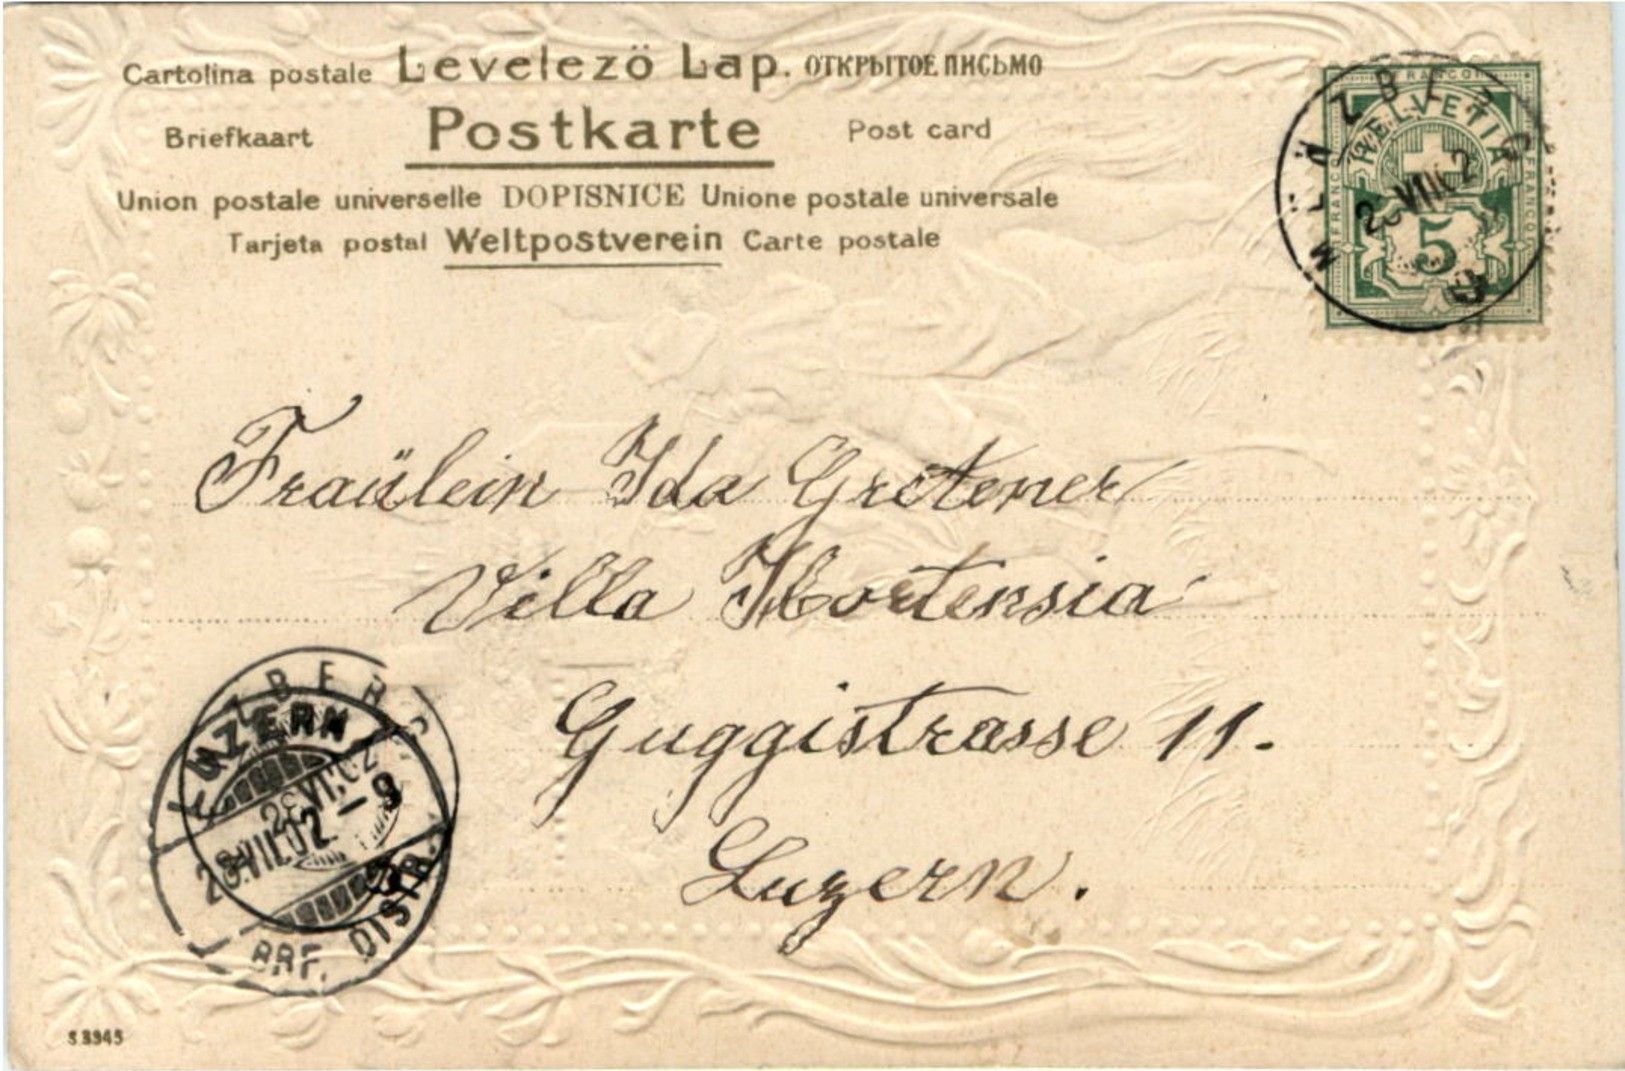 Cartolina postale Levelező Lap. ОТКРЫТОЕ ПИСЬМО
Briefkaart Postkarte Post card
Union postale universelle DOPISNICE Unione postale universale
Tarjeta postal Weltpostverein Carte postale
FRANCO
HELVETIA
FRANCO
FRANCO
5
VII 02
Fraülein Ida Grotener
Villa Hortensia
Guggistrasse 11.
Luzern.
LUZERN
28.VII.02.–9
BRF. DISTR.
S 3945